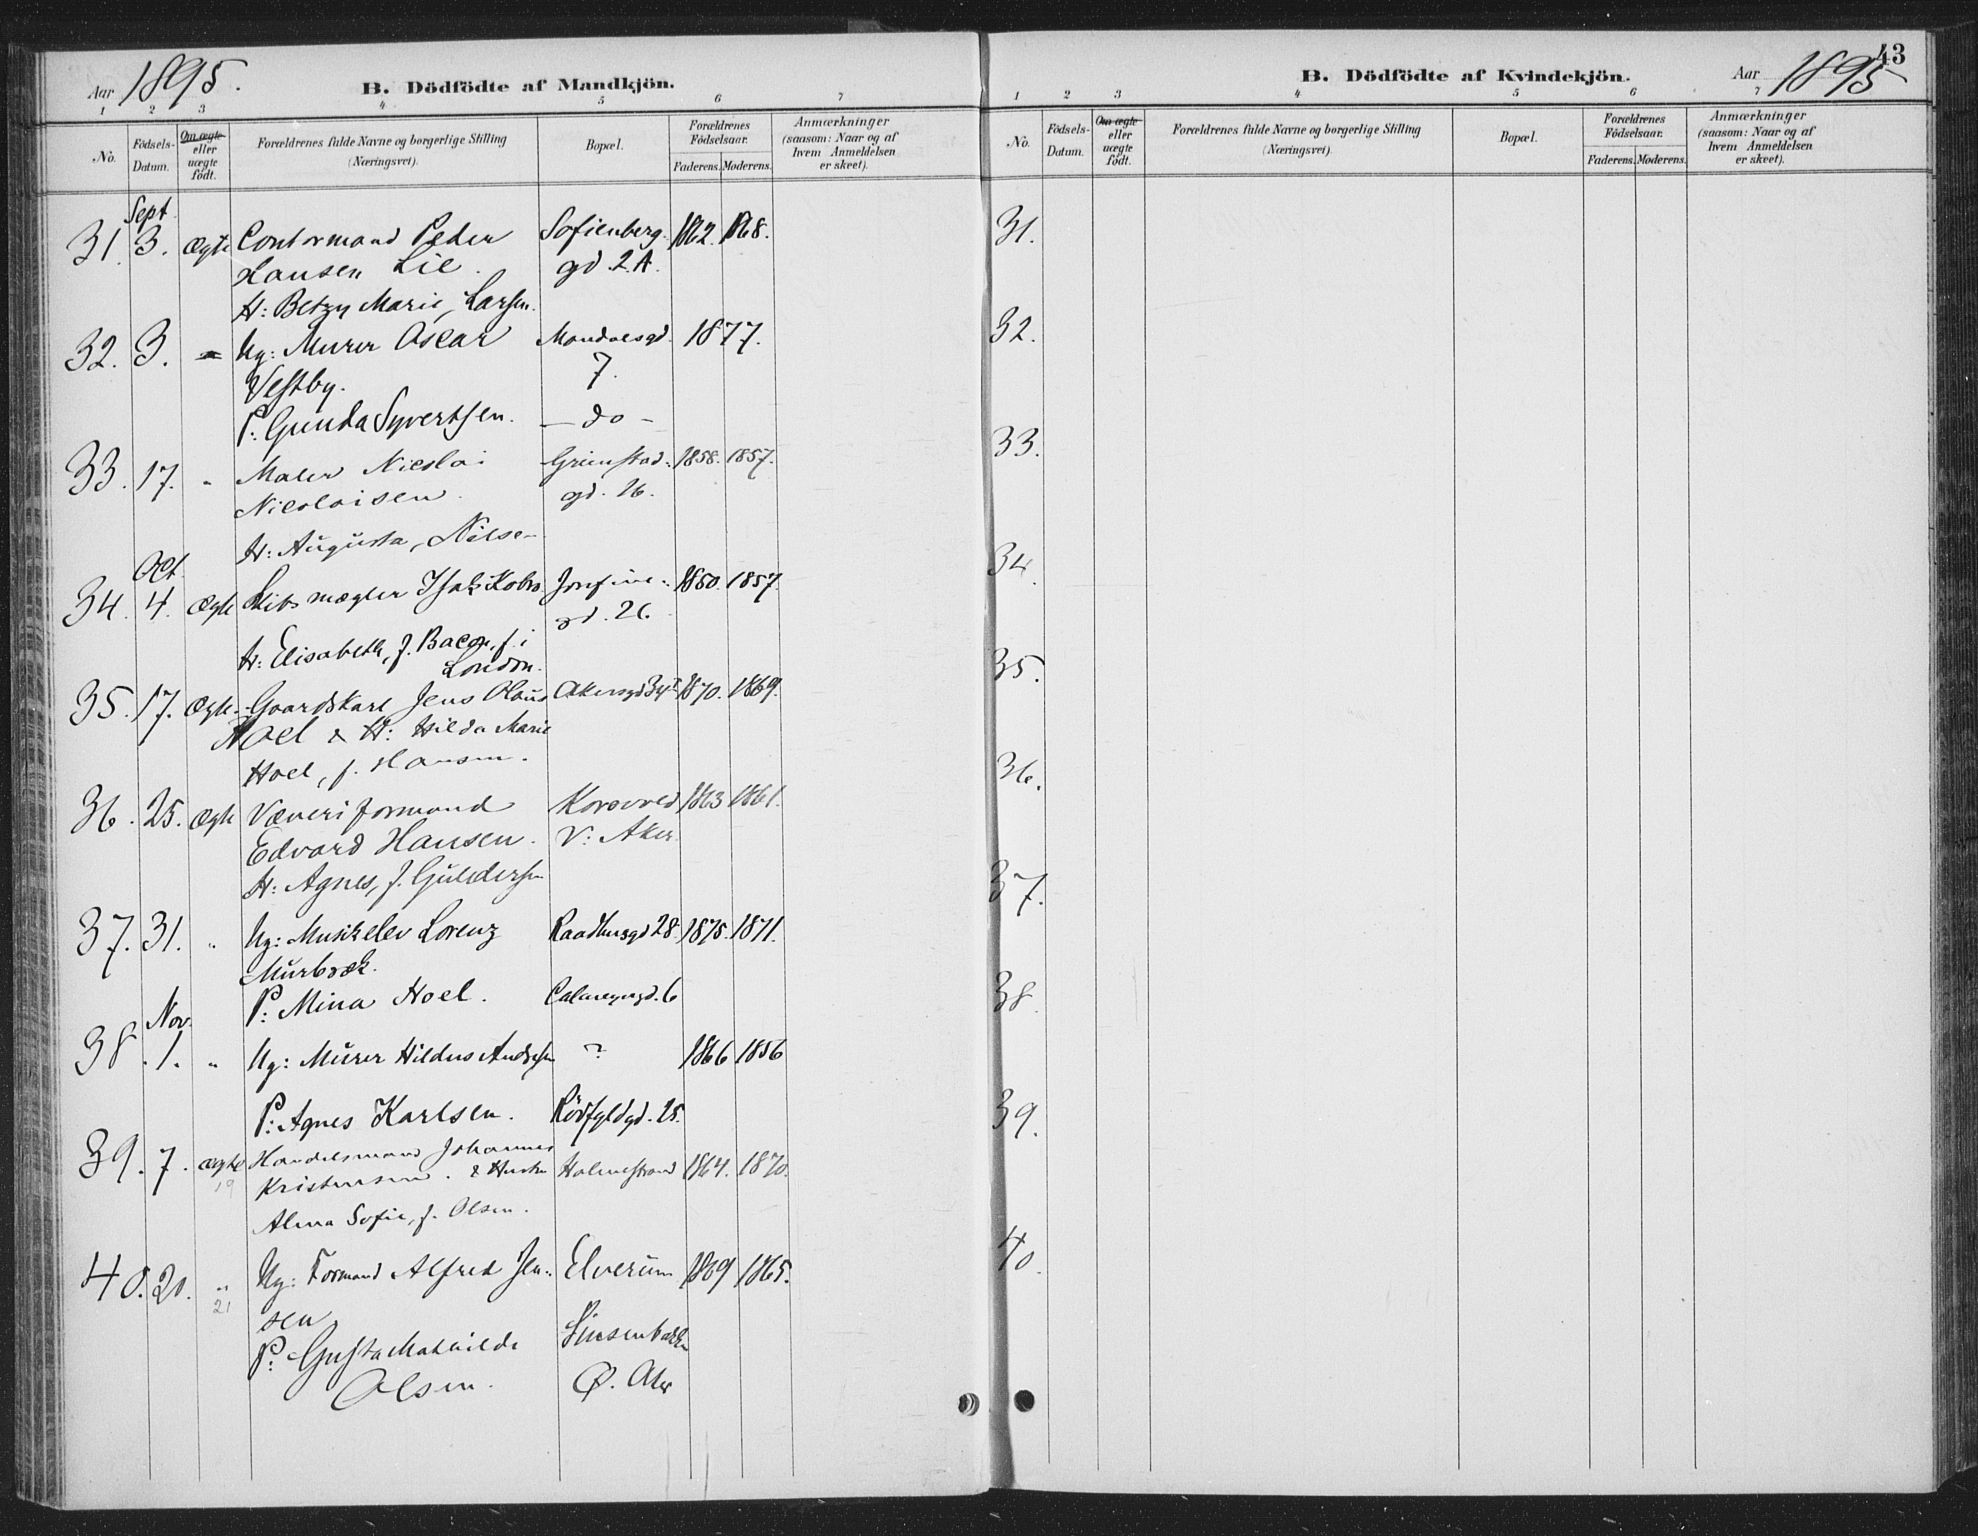 Aar 1895.
B. Dödfödte af Mandkjön.
1 2 3 4 5 6 7
No.
Födsels-Datum.
Om ægte eller uægte født.
Forældrenes fulde Navne og borgerlige Stilling (Næringsvei).
Bopæl.
Forældrenes Födselsaar.
Faderens. Moderens.
Anmærkninger (saasom: Naar og af hvem Anmeldelsen er skeet).
Sept.
31. 3. Ægte Contormand Peder Sofienberg. 1862. 1868.
Hansen Lie. gd. 2 A.
H: Betzy Marie, Larsen.
32. 3. Ug: Murer Oscar Mandalsgd. 1877.
Vestby. 7.
P: Gunda Syvertsen. – do –
33. 17. " Maler Nicolai Grimstad- 1858. 1857.
Nicolaisen. gd. 26.
H: Augusta, Nilsen
Oct.
34. 4. Ægte Skibsmægler Isak Kobro Josefine- 1850. 1857.
gd. 26.
H: Elisabeth, f. Bacon, f. i
London.
35. 17. Ægte. Gaardskarl Jens Olaus Akersgd 34 1870. 1869.
Hoel & H: Hilda Marie
Hoel, f. Hansen.
36. 25. Ægte Væveriformand 1863 1861.
Edvard Hansen. V: Aker.
H: Agnes, f. Guldersen
37. 31. " Ug: Musikelev Lorenz Raadhusgd 28. 1875. 1871.
Murbræk.
P: Mina Hoel. Calmeyergd. 6
Nov.
38. 1. " Ug: Murer Hildus Andresen ? 1866 1856
P: Agnes Karlsen. Rödfyldgd. 25.
39. 7. ægte Handelsmand Johannes
19 Kristensen. & Hustru Holmestrand 1864. 1870.
Alma Sofie, f. Olsen.
40. 20. " Ug: Formand Alfred Jen- Elverum 1869 1865.
21 sen
P: Gusta Mathilde Sinsenbakken
Olsen. Ø. Aker
43
B. Dödfödte af Kvindekjön.
Aar 1895
1 2 3 4 5 6 7
No.
Födsels-Datum.
Om ægte eller uægte födt.
Forældrenes fulde Navne og borgerlige Stilling (Næringsvei).
Bopæl.
Forældrenes Födselsaar.
Faderens. Moderens.
Anmærkninger (saasom: Naar og af hvem Anmeldelsen er skeet).
31.
32.
33.
34.
35.
36.
37.
38.
39.
40.